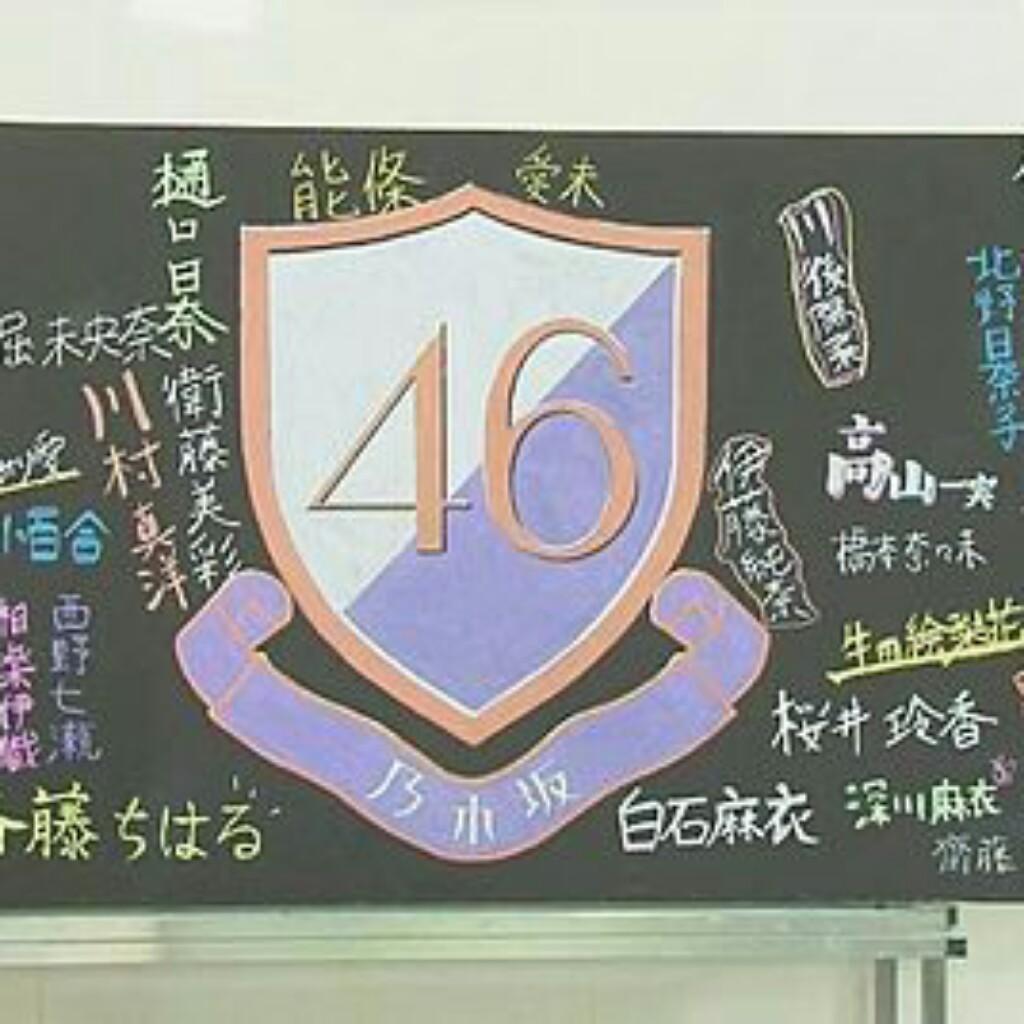 樋口日奈
能條
愛未
北野日奈子
未央奈
川村真洋
衛藤美彩
46
高山一実
伊藤純奈
小百合
橋本奈々未
西野七瀬
相楽伊織
生田絵梨花
桜井玲香
乃木坂
藤ちはる
白石麻衣
深川麻衣
斎藤